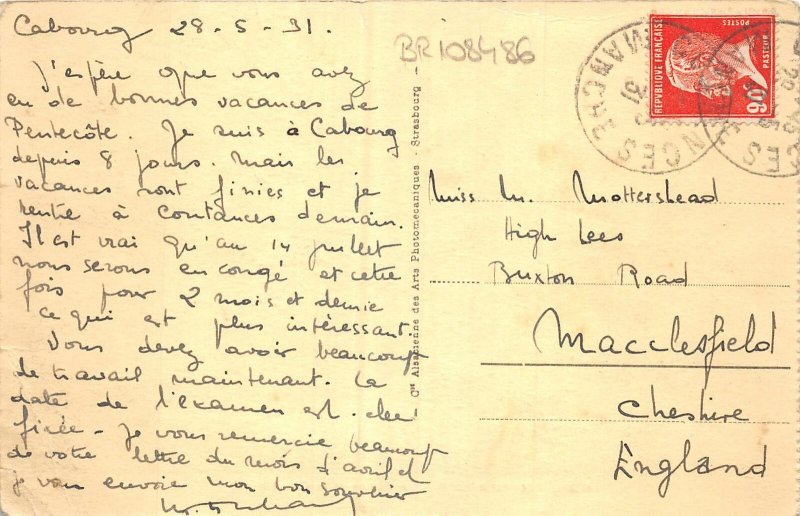 Cabourg 28-5-31.
BR108486
J'espère que vous avez
eu de bonnes vacances de
Pentecôte. Je suis à Cabourg
depuis 8 jours. Mais les
vacances sont finies et je
rentre à Coutances demain.
Il est vrai qu'au 14 juillet
nous serons en congé et cette
fois pour 2 mois et demie
ce qui est plus intéressant
Vous devez avoir beaucoup
de travail maintenant. La
date de l'examen est-elle
fixée - Je vous remercie beaucoup
de votre lettre du mois d'avril et
je vous envoie mon bon souvenir
Cie Alsacienne des Arts Photomécaniques - Strasbourg -
REPVBLIQVE FRANÇAISE
POSTES
PASTEUR
90
MANCHE
31
CES
Miss M. Mottershead
High Lees
Buxton Road
Macclesfield
Cheshire
England